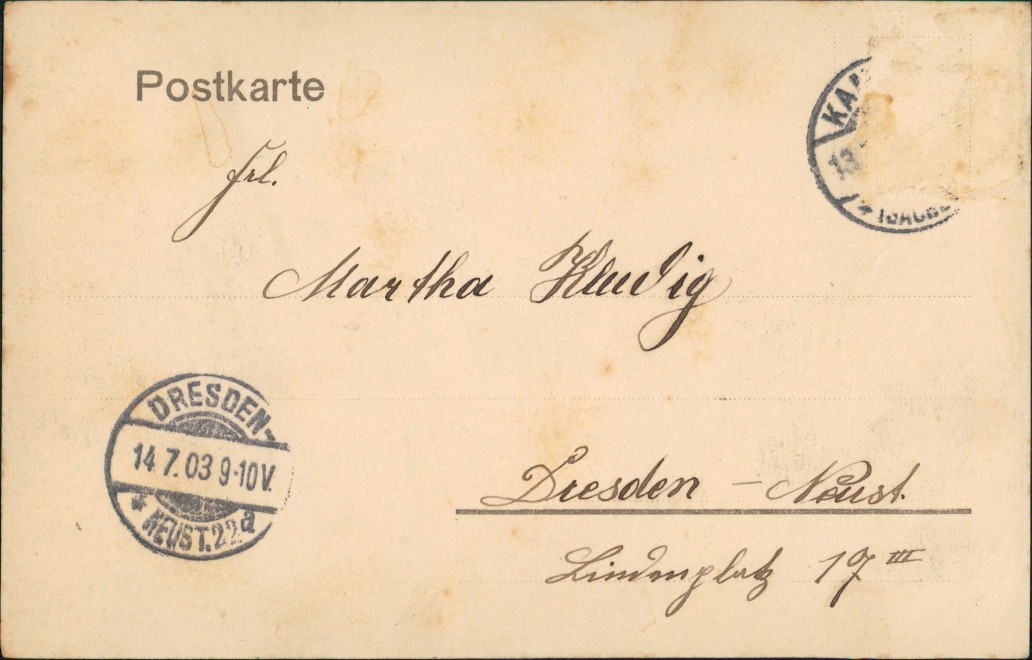 Postkarte
KA
13
* (SACHS
Frl.
Martha Kludig
DRESDEN-
14.7.03 9-10V.
* NEUST. 22 a
Dresden - Neust.
Lindenplatz 17 III